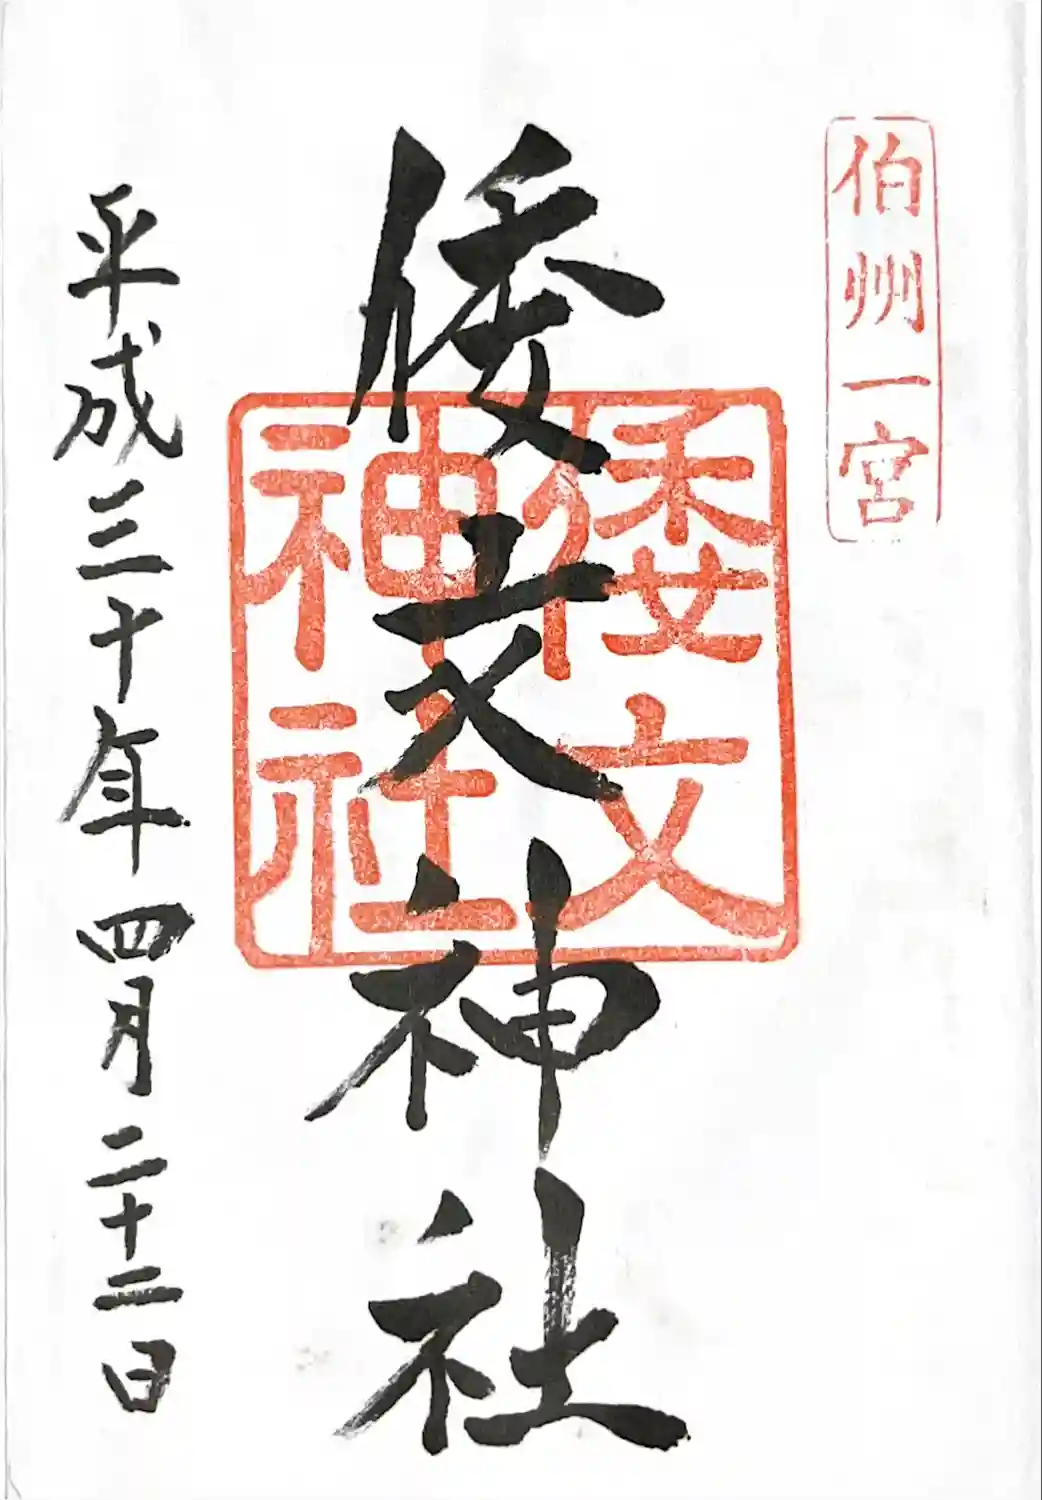 伯州一宮
倭文神社
倭文
神社
平成三十年四月二十二日